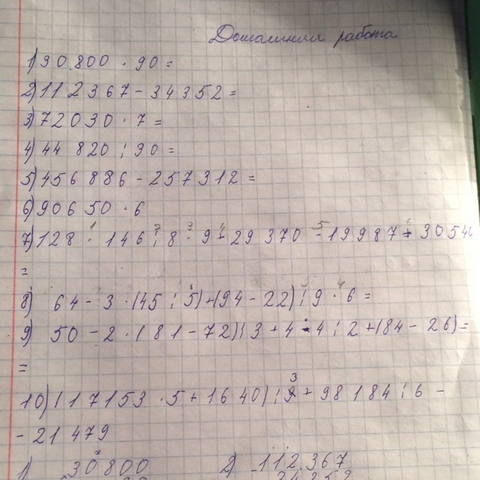 Домашняя работа
1) 30 800 · 90 =
2) 112367 - 34352 =
3) 72030 · 7 =
4) 44 820 : 90 =
5) 456 886 - 257 312 =
6) 90650 · 6
7) 128 · 146 : 8 · 9 + 29 370 - 19987 + 30546
=
8) 64 - 3 · (45 : 5) + (94 - 22) : 9 · 6 =
9) 50 - 2 · (81 - 72) : 3 + 4 · 4 : 2 + (84 - 26) =
=
10) (17153 · 5 + 1640) : 3 + 98184 : 6 -
- 21 479
1) 30800 2) 112 367